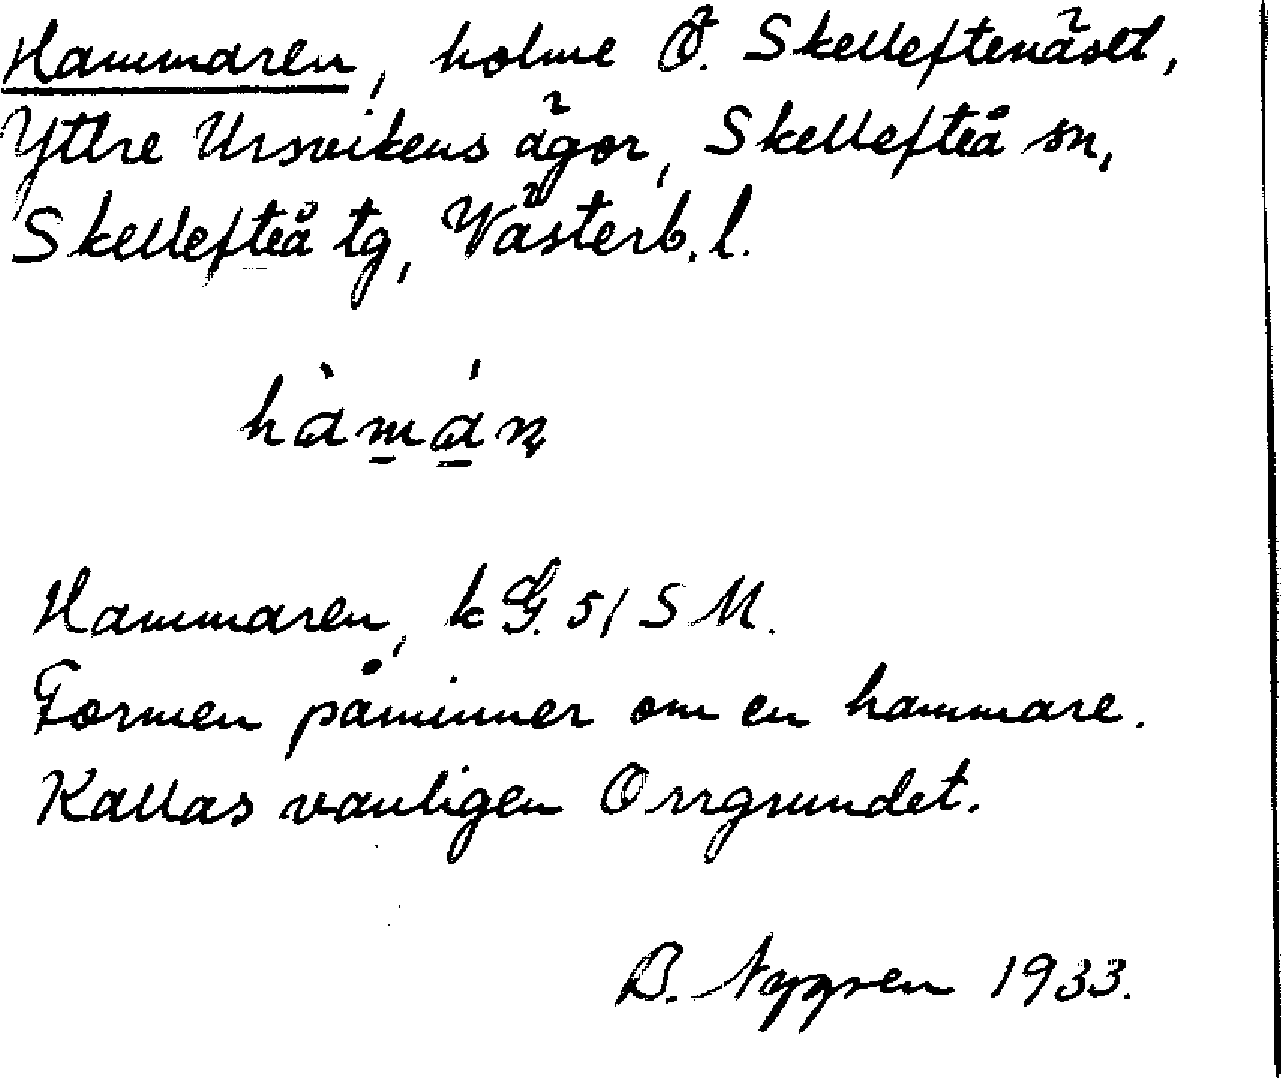 Hammaren, holme Ö. Skelleftenäset,
Yttre Ursvikens ägor, Skellefteå sn,
Skellefteå tg, Västerb. l.
hàmán
Hammaren, k G. 51 S M.
Formen påminner om en hammare.
Kallas vanligen Orrgrundet.
B. Nygren 1933.